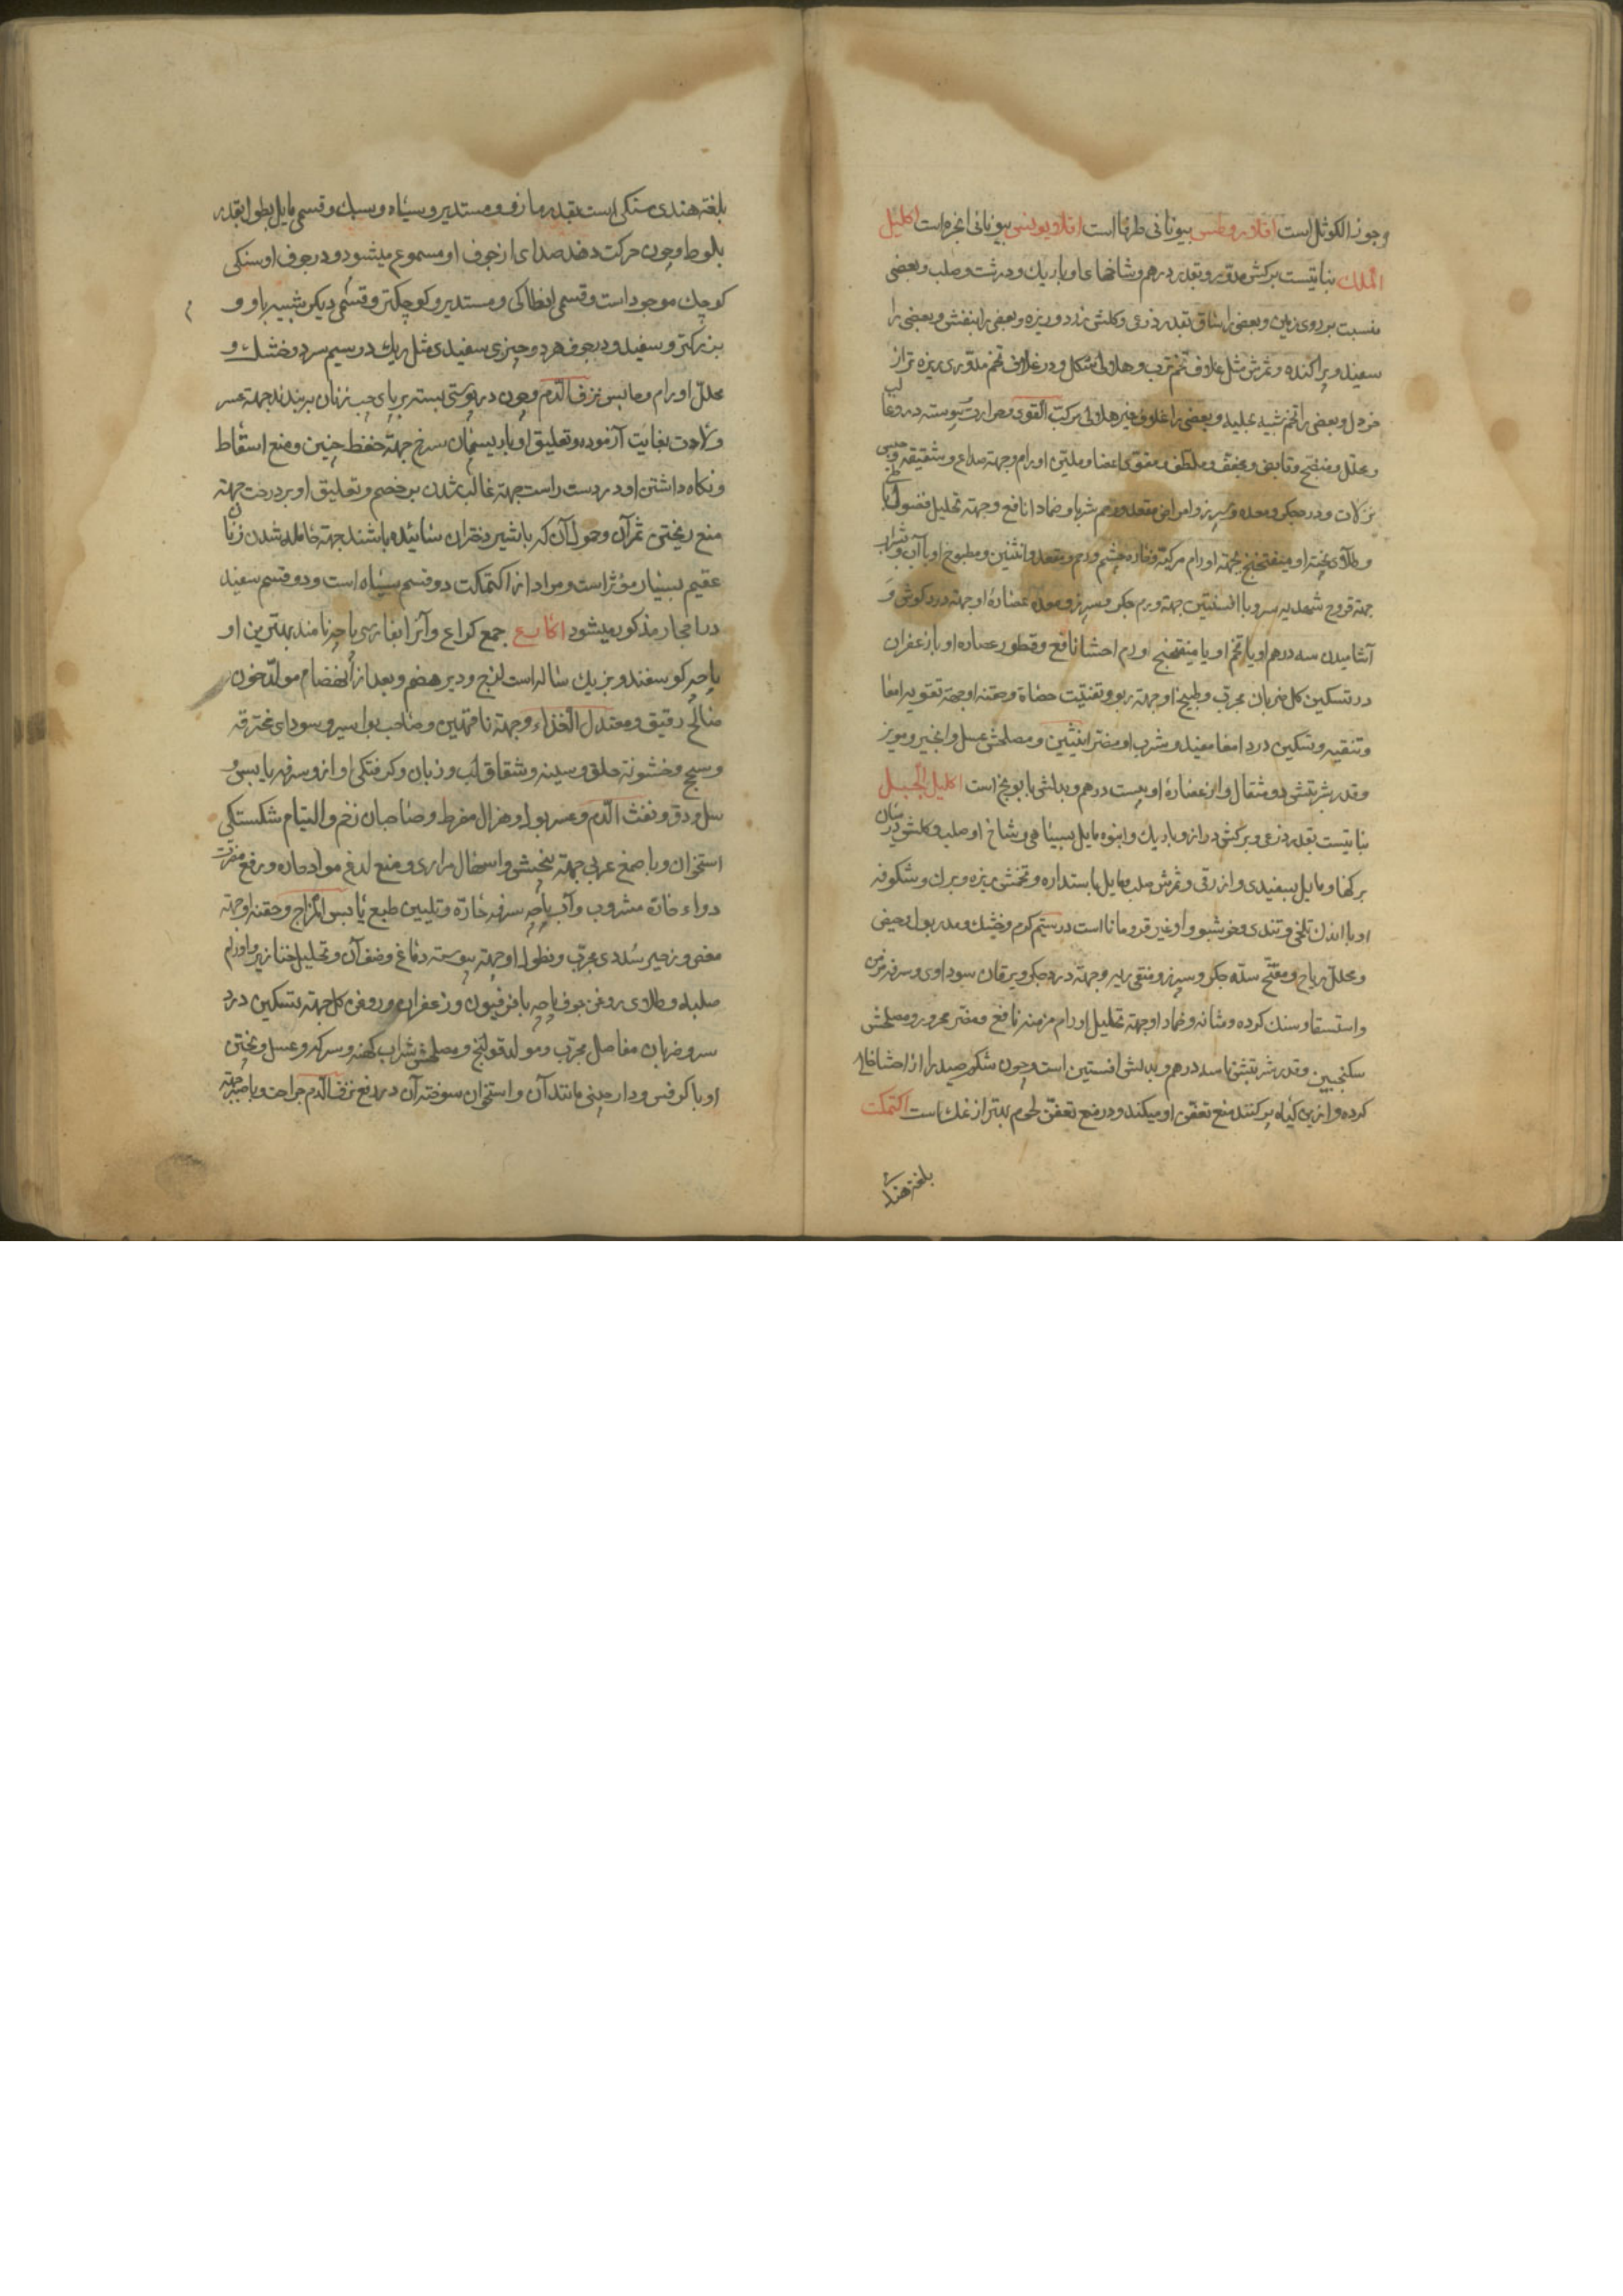 وجوز الکوثل است افلاروطس بیونانی طرفا است افلادیونس بیونانی انجره است اکلیل
الملک نباتیست برکش مدوّر و بقدر درهم و شاخهای او باریک و درشت و صلب و بعضی
منبسط بر روی زمین و بعضی را ساق بقدر ذرعی و کلش زرد و ریزه و بعضی را بنفش و بعضی را
سفید و پراکنده و ثمرش مثل غلاف تخم ترب و هلالی شکل و در غلاف تخم مدوّری ریزه تر از
خردل و بعضی را تخم شبیه بحلبه و بعضی را غلاف غیر هلالی مرکب القوی و حرارت
و محلل و منضج و قابض و مجفف و ملطف و مقوی اعضا و ملین اورام و جهته صداع و شقیقه
نزلات و درد جکر و معده و سپرز و امراض مقعد و رحم شربا و ضمادا نافع و جهته تحلیل فضول
و طلای پخته او بمیفختج جهته اورام مرکبه و حاره چشم و رحم و مقعد و انثیین و مطبوخ او با آب و شراب
جهته قروح شهدیه سر و با افسنتین جهته ورم جکر و سپرز و معده عصارهٔ او جهته درد کوش و
آشامیدن سه درهم او یا تخم او با میفختج اورام احشا نافع و قطور عصاره او با زعفران
در تسکین کل ضربان مجرب و طبیخ او جهته ربو و تفتیت حصاة و حقنه او جهته تقویه امعا
و تنقیه و تسکین درد امعا مفید و شرب او مضر انثیین و مصلحش عسل و انجیر و مویز
و قدر شربتش دو مثقال و از عصارهٔ او بیست درهم و بدلش بابونج است اکلیل الجبل
نباتیست بقدر ذرعی و برکش دراز و باریک و انبوه مایل بسیاهی و شاخ او صلب و کلش در میان
برکها و مایل بسفیدی و ازرقی و ثمرش صلب و مایل باستداره و تخمش ریزه و برک و شکوفه
او با اندک تلخی و تندی و خوشبو و او غیر قردمانا است در سیم کرم و خشک و مدر بول و حیض
و محلل ریاح و مفتح سده جکر و سپرز و منقی ریه و جهته درد جکر و یرقان سوداوی و سرفه مزمن
و استسقا و سنک کرده و مثانه و ضماد او جهته تحلیل اورام مزمنه نافع و مضر محرور و مصلحش
سکنجبین و قدر شربتش تا سه درهم و بدلش افسنتین است و چون شکم صید را از احشا خالی
کرده و ازین کیاه پر کنند منع تعفن او میکند و در منع تعفن لحوم بهتر از نمک است اکتمکت
بلغة هندی
بلغة هندی سنکی است بقدر مازو و مستدیر و سیاه و سبک و قسمی مایل بطول بقدر
بلوط و چون حرکت دهند صدای از جوف او مسموع میشود و در جوف او سنکی
کوچک موجود است و قسمی انطاکی و مستدیر و کوچکتر و قسمی دیکر شبیه باو و
بزرکتر و سفید و در جوف هر دو چیزی سفیدی مثل ریک در سیم سرد و خشک و
محلل اورام و حابس نزف الدم و چون در پوستی بسته بر پای چپ زنان به بندند جهته عسر
ولادت بغایت آزموده و تعلیق او با ریسمان سرخ جهته حفظ جنین و منع اسقاط
و نکاه داشتن او در دست راست جهته غالب شدن بر خصم و تعلیق او بر درخت جهته
منع ریختن ثمر آن و حمول آن که با شیر دختران سائیده باشند جهته حامله شدن زنان
عقیم بسیار مؤثر است و مراد از اکتمکت دو قسم سیاه است و دو قسم سفید
در احجار مذکور میشود اکارع جمع کراع و آنرا بفارسی پاچه نامند بهترین او
پاچه کوسفند و بز یک ساله است لزج و دیر هضم و بعد از انهضام مولد خون
صالح رقیق و معتدل الغذاء و جهته ناقهین و صاحب بواسیر و سودای محترقه
و سحج و خشونة حلق و سینه و شقاق لب و زبان و کرفتکی آواز و سرفه یابس و
سل و دق و نفث الدم و عسر بول و هزال مفرط و صاحبان زخم و التیام شکستکی
استخوان و با صمغ عربی جهته سحج و اسهال مراری و منع لدغ مواد حاره و رفع مضرت
دواء حاده مشروب و آب پاچه سرفه حاره و تلیین طبع یابس المزاج و حقنه او جهته
مغص و زحیر سددی مجرب و نطول او جهته یبوسة دماغ و ضعف آن و تحلیل خنازیر و اورام
صلبه و طلای روغن جوف پاچه با فرفیون و زعفران و روغن کل جهته تسکین درد
سر و ضربان مفاصل مجرب و مولد قولنج و مصلحش شراب کهنه و سرکه و عسل و پختن
او با کرفس و دارچینی و مانند آن و استخوان سوخته آن در منع نزف الدم جراحت و با جهته